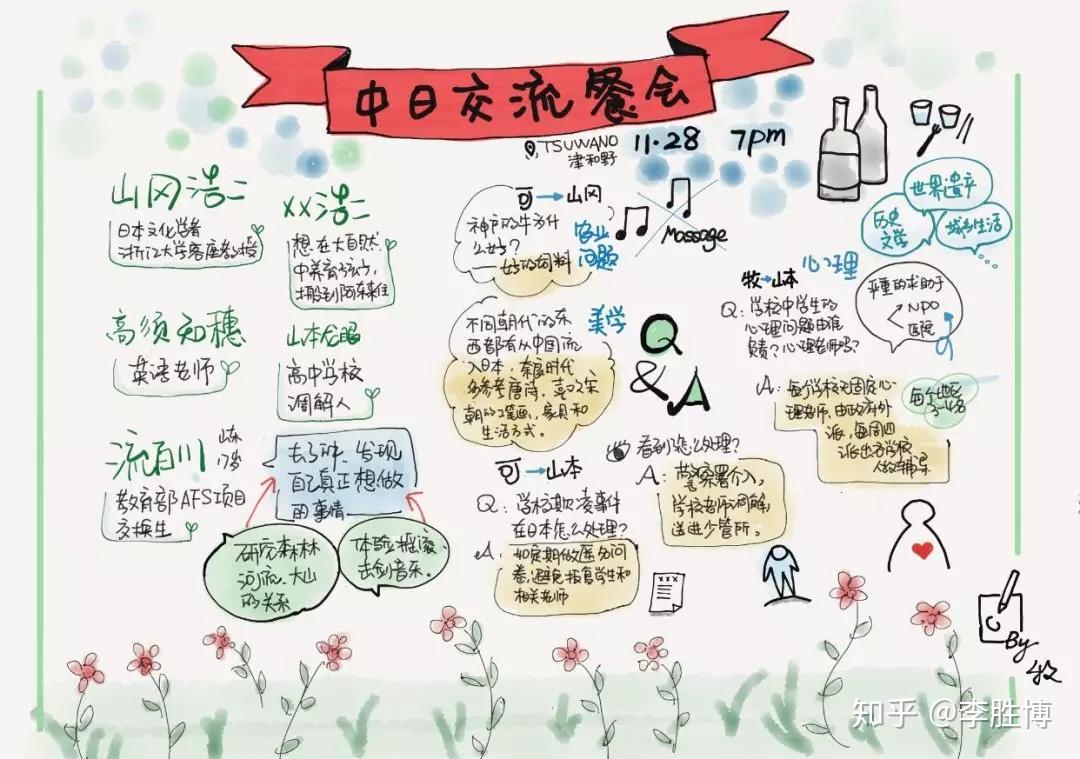 中日交流餐会
TSUWANO
津和野
11·28 7pm
山冈浩二
日本文化学者
浙江大学客座教授
××浩二
想在大自然
中养育孩子,
搬到阿东来住
高须知穗
英语老师
山本龙
高中学校
调解人
流百川
山东
17岁
教育部AFS项目
交换生
去了哪、发现
自己真正想做
的事情
研究森林
河流、大山
的关系
体验摇滚、
去创音乐.
可→山冈
神户的牛为什
么好?
——好的饲料
农业
问题
Massage
不同朝代的东
西都有从中国流
入日本,奈良时代
多参考唐诗,喜欢宋
朝的工笔画、家具和
生活方式。
美学
Q
&A
可→山本
Q:学校欺凌事件
在日本怎么处理?
A:如定期做匿名问
卷,避免报复学生和
相关老师
看到怎么处理?
A:警察署介入,
学校老师调解
送进少管所。
×××
世界遗产
历史
文学
城乡生活
牧→山本
心理
Q:学校中学生的
心理问题由谁
负责?心理老师吗?
严重的求助于
NPO
医院
A:每个学校不固定心
理老师,由政府外
派,每周四
派出去学校
做辅导
每个地区
3-4名
By
牧
知乎 @李胜博